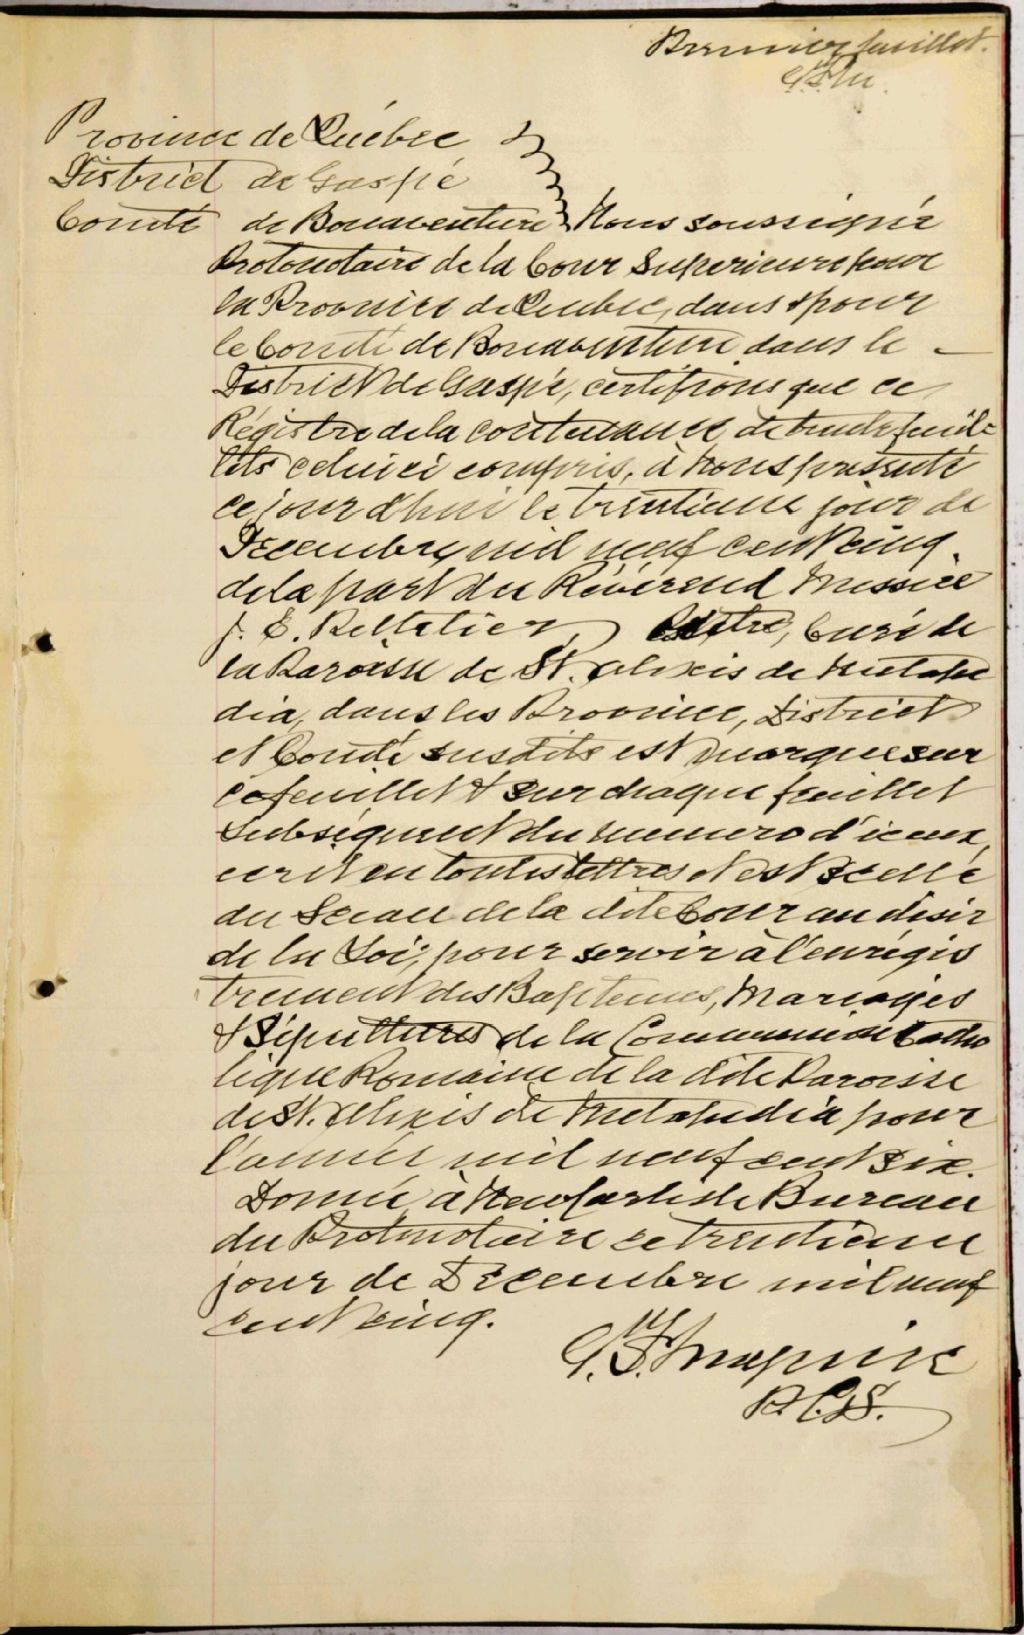 Premier feuillet.
Province de Québec
District de Gaspé
Comté de Bonaventure Nous soussigné
Protonotaire de la Cour Superieure pour
la Province de Quebec, dans & pour
le Comté de Bonaventure dans le
District de Gaspé, certifions que ce
Régistre de la contenance de trente feuil-
lets celui ci compris, à nous présenté
ce jour d'hui le trentieme jour de
Decembre mil neuf cent cinq
de la part du Révérend Messire
J. E. Pelletier Ptre, Curé de
la Paroisse de St. Alexis de Metape
dia, dans les Province, District
et Comté susdits est marque sur
ce feuillet & sur chaque feuillet
subséquent du numero d'iceux,
ecrit en toutes lettres et est Scellé
du Sceau de la dite Cour au désir
de la Loi, pour servir à l'enrégis
trement des Baptemes, Mariages
& Sépultures de la Communion Catho
lique Romaine de la dite Paroisse
de St. Alexis de Metapedia pour
l'année mil neuf cent Six.
Donné à New Carlisle Bureau
du Protonotaire ce trentieme
jour de Decembre mil neuf
cent cinq.
P.C.S.